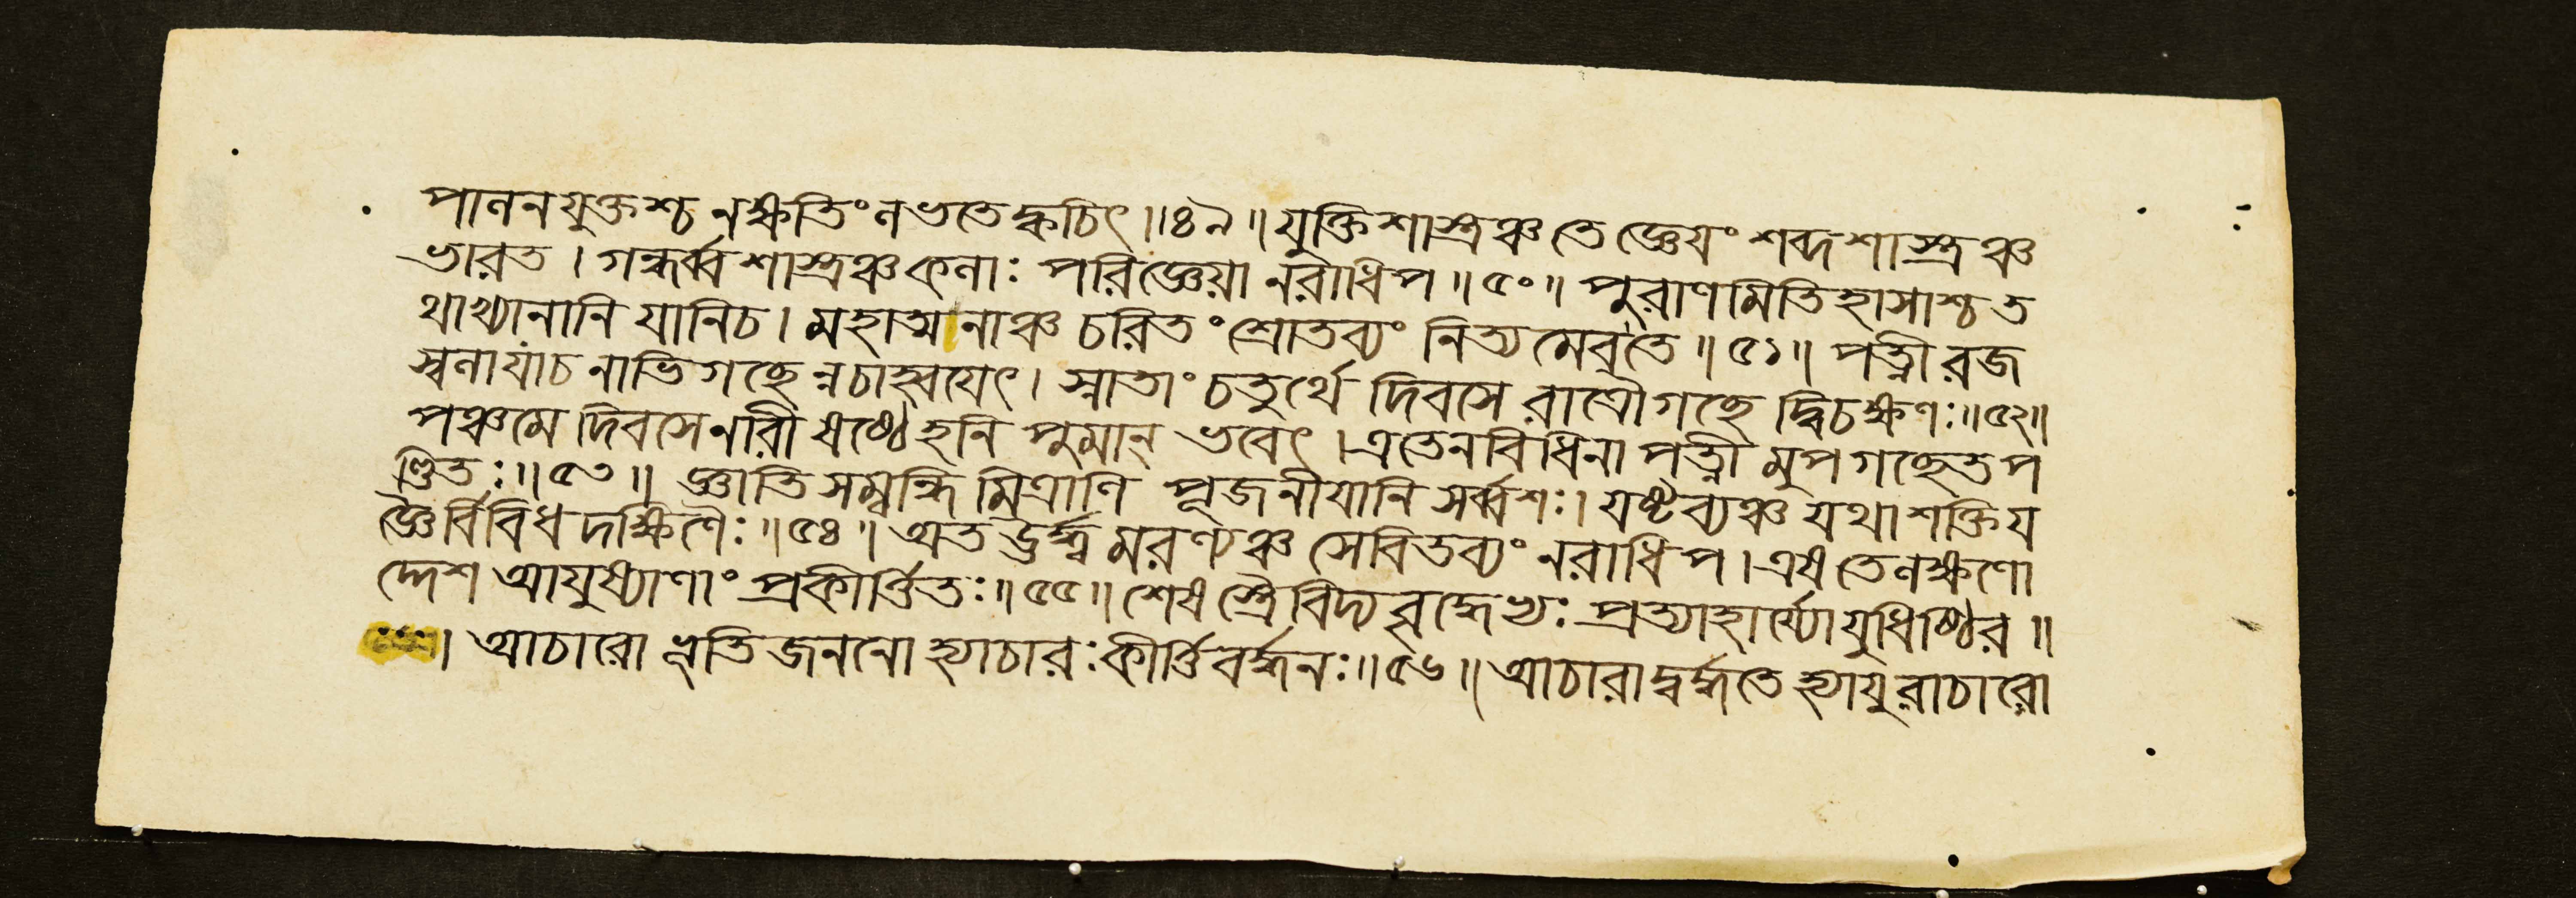 পালনযুক্তশ্চ নক্ষতিং লভতেক্বচিৎ॥৪৯॥ যুক্তিশাস্ত্রঞ্চ তে জ্ঞেযং শব্দশাস্ত্রঞ্চ
ভারত। গন্ধর্ব্বশাস্ত্রঞ্চকলাঃ পরিজ্ঞেয়া নরাধিপ॥৫০॥ পুরাণমিতিহাসাশ্চত
থাখ্যানানি যানিচ। মহাত্মনাঞ্চ চরিতং শ্রোতব্যং নিত্যমেবতে॥৫১॥ পত্নীরজ
স্বলাযাংচ নাভিগচ্ছেন্নচাহ্বযেৎ। স্নাতাং চতুর্থে দিবসে রাত্রৌগচ্ছেদ্বিচক্ষণঃ॥৫২॥
পঞ্চমে দিবসেনারী ষষ্ঠেহনি পুমান্ ভবেৎ। এতেনবিধিনা পত্নীমুপগচ্ছেতপ
ণ্ডিতঃ॥৫৩॥ জ্ঞাতিসম্বন্ধিমিত্রাণি পূজনীযানি সর্ব্বশঃ। যষ্টব্যঞ্চ যথাশক্তিয
জ্ঞৈর্বিবিধদক্ষিণৈঃ॥৫৪॥ অতঊর্দ্ধ্বমরণ্যঞ্চ সেবিতব্যং নরাধিপ। এষতেলক্ষণো
দ্দেশ আযুষ্যাণাং প্রকীর্ত্তিতঃ॥৫৫॥ শেষস্ত্রৈবিদ্যবৃদ্ধেভ্যঃ প্রত্যাহার্য্যোযুধিষ্ঠির॥
। আচারো ভূতিজননোহ্যাচারঃকীর্ত্তিবর্দ্ধনঃ॥৫৬॥ আচারাদ্বর্দ্ধতে হ্যাযুরাচারো